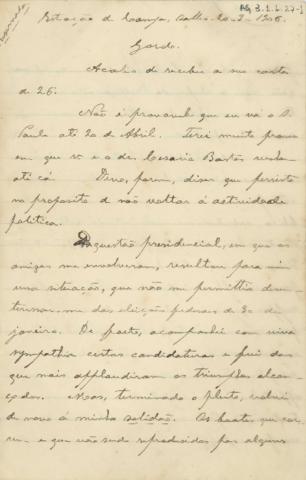 AG 3.1.6.27-1
Estação de Campo, 20-2-1906.
Gordo.
Acabo de receber a sua carta
de 26.
Não é provavel que eu vá a S.
Paulo até 20 de Abril. Terei muito prazer
em que v. e o dr. Cesario Bastos venham
até cá. Devo, porem, dizer que persisto
no proposito de não voltar á actividade
politica.
Da questão presidencial, em que os
amigos me envolveram, resultou para mim
uma situação, que não me permittia
das eleições federaes de 30 de
janeiro. De facto, acompanhei com viva
sympathia certas candidaturas e fui dos
que mais applaudiram os triumphos alcan-
çados. Mas, terminado o pleito, volvi
de novo á minha solidão. Os boatos que cor-
rem e que vão sendo reproduzidos por alguns